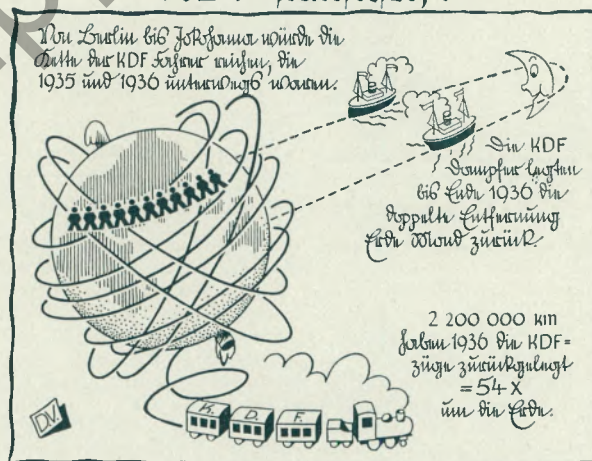 Von Berlin bis Jokohama würde die
Kette der KDF Fahrer reichen, die
1935 und 1936 unterwegs waren.
Die KDF
Dampfer legten
bis Ende 1936 die
doppelte Entfernung
Erde Mond zurück.
2 200 000 km
haben 1936 die KDF=
züge zurückgelegt
= 54 X
um die Erde.
K. D. F.
D.V.